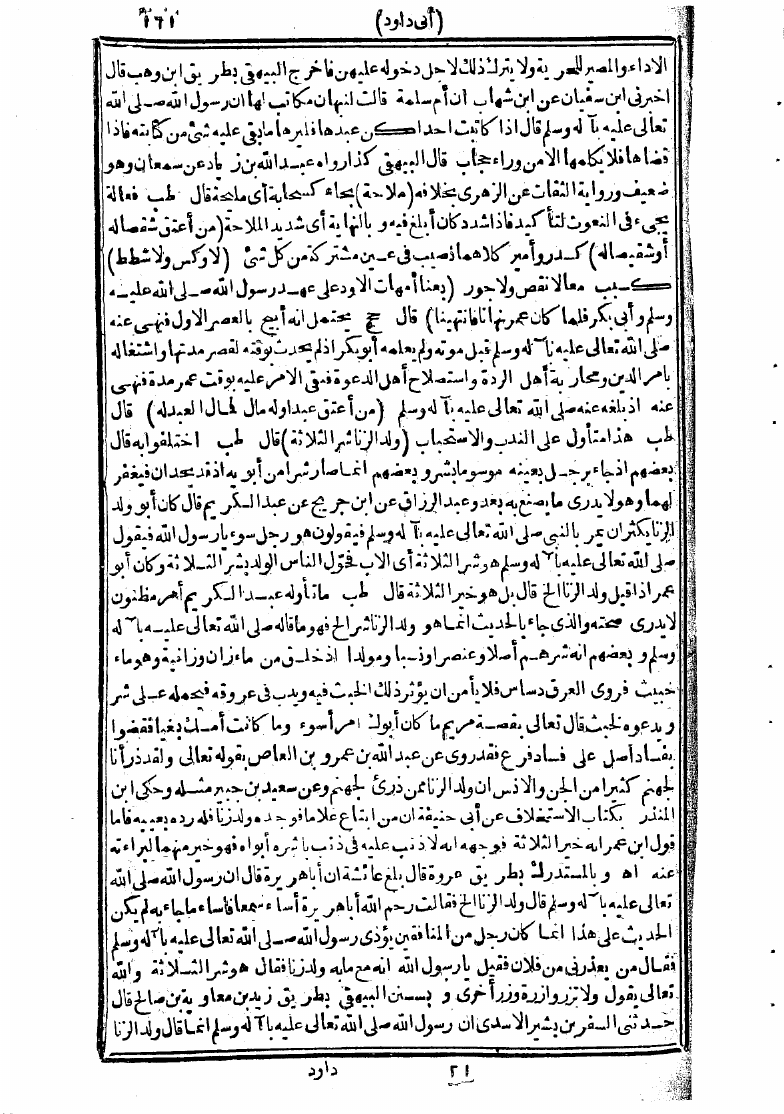 (أبى داود) ١٦١
الاداء والمصير للحرية ولا يترك ذلك لاجل دخوله عليهن فاخرج البيهقى بطريق ابن وهب قال
اخبرنى ابن سمعان عن ابن شهاب ان أم سلمة قالت لنبهان مكاتب لها ان رسول الله صلى الله
تعالى عليه بآله وسلم قال اذا كاتبت احداكن عبدها فليرها ما بقى عليه شئ من كتابته فاذا
قضاها فلا يكلمها الا من وراء حجاب قال البيهقى كذا رواه عبد الله بن زياد عن سمعان وهو
ضعيف ورواية الثقات عن الزهرى بخلافه (ملاحة) بحاء كسحابة أى مليحة قال طب فعالة
يجىء فى النعوت لتأكيد فاذا شدد كان أبلغ فيه وبالنهاية أى شديد الملاحة (من أعتق شقصاله
أو شقيصاله) كسدر وأمير كلاهما نصيب فى عين مشتركة من كل شئ (لا وكس ولا شطط)
كسبب معا لا نقص ولا جور (بعنا أمهات الاولاد على عهد رسول الله صلى الله عليه
وسلم وأبى بكر فلما كان عمر نهانا فانتهينا) قال حج يحتمل انه أبيح بالعصر الاول فنهى عنه
صلى الله تعالى عليه بآله وسلم قبل موته ولم يعلمه أبو بكر اذ لم يحدث بوقته لقصر مدتها واشتغاله
بامر الدين ومحاربة أهل الردة واستصلاح أهل الدعوة فبقى الامر عليه بوقت عمر مدة فنهى
عنه اذ بلغه عنه صلى الله تعالى عليه بآله وسلم (من أعتق عبدا وله مال فمال العبد له) قال
طب هذا متأول على الندب والاستحباب (ولد الزنا شر الثلاثة) قال طب اختلفوا به قال
بعضهم اذ جاء برجل بعينه موسوما بشر وبعضهم انما صار شرا من أبويه اذ قد يحدان فيغفر
لهما وهو لا يدرى ما يصنع به بعد وعبد الرزاق عن ابن جريج عن عبد الكريم قال كان أبو ولد
الزنا يكثر ان يمر بالنبى صلى الله تعالى عليه بآله وسلم فيقولون هو رجل سوء يا رسول الله فيقول
صلى الله تعالى عليه بآله وسلم هو شر الثلاثة أى الاب فحوّل الناس الولد بشر الثلاثة وكان أبو
عمر اذا قيل ولد الزنا الخ قال بل هو خير الثلاثة قال طب ما تأوله عبد الكريم أمر مظنون
لا يدرى صحته والذى جاء بالحديث انما هو ولد الزنا شر الخ فهو ما قاله صلى الله تعالى عليه بآله
وسلم وبعضهم انه شرهم أصلا وعنصرا ونسبا ومولدا اذ خلق من ماء زان وزانية وهو ماء
خبيث فروى العرق دساس فلا يأمن ان يؤثر ذلك الخبث فيه ويدب فى عروقه فيحمله على شر
ويدعوه لخبث قال تعالى بقصة مريم ما كان أبوك امرأ سوء وما كانت أمك بغيا فقضوا
بفساد أصل على فساد فرع فقد روى عن عبد الله بن عمرو بن العاص بقوله تعالى ولقد ذرأنا
لجهنم كثيرا من الجن والانس ان ولد الزنا ممن ذرئ لجهنم وعن سعيد بن جبير مثله وحكى ابن
المنذر بكتاب الاستحلاف عن أبى حنيفة ان من ابتاع غلاما فوجده ولد زنا فله رده بعيبه فاما
قول ابن عمر انه خير الثلاثة فوجهه انه لا ذنب عليه فى ذنب باشره أبواه فهو خير منهما لبراءته
عنه اه وبالمستدرك بطريق عروة قال بلغ عائشة ان أبا هريرة قال ان رسول الله صلى الله
تعالى عليه بآله وسلم قال ولد الزنا الخ فقالت رحم الله أبا هريرة أساء سمعا فأساء ما جاء به لم يكن
الحديث على هذا انما كان رجل من المنافقين يؤذى رسول الله صلى الله تعالى عليه بآله وسلم
فقال من يعذرنى من فلان فقيل يا رسول الله انه مع ما به ولد زنا فقال هو شر الثلاثة والله
تعالى يقول ولا تزر وازرة وزر أخرى وبسنن البيهقى بطريق زيد بن معاوية بن صالح قال
حدثنى السفر بن بشير الاسدى ان رسول الله صلى الله تعالى عليه بآله وسلم انما قال ولد الزنا
٢١ داود